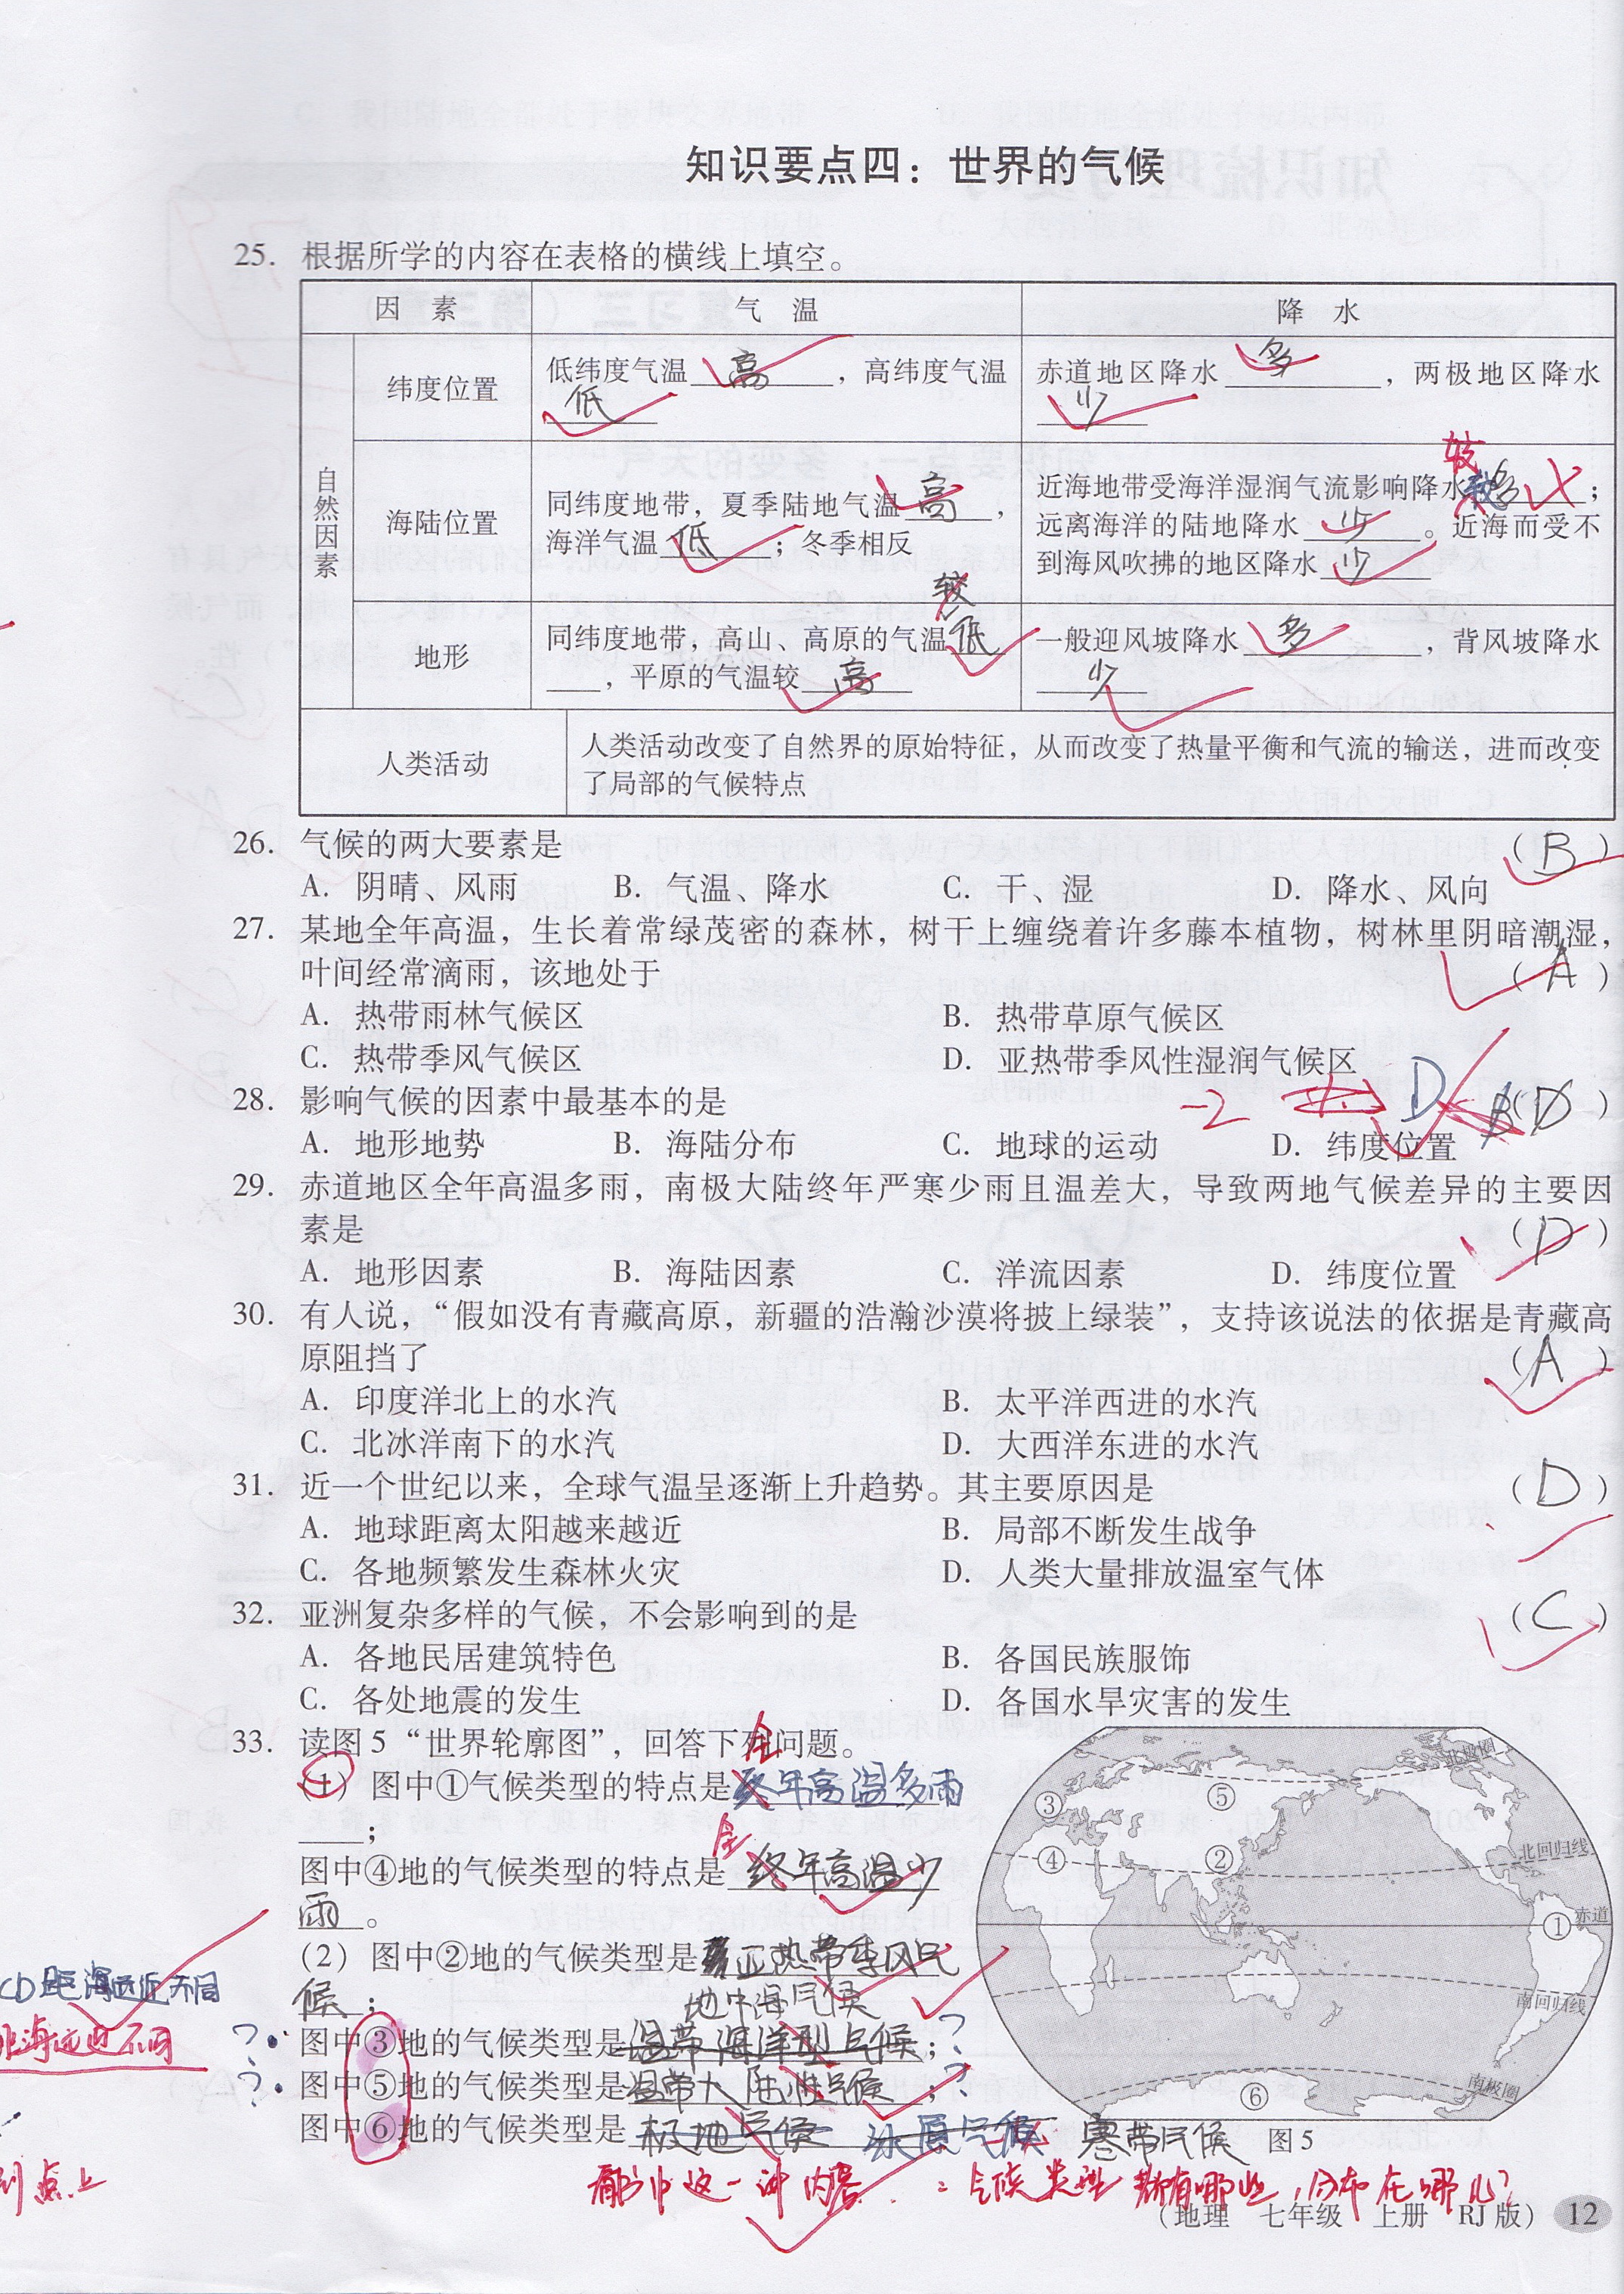 知识要点四：世界的气候
25. 根据所学的内容在表格的横线上填空。
因 素 气 温 降 水
自然因素
纬度位置
低纬度气温 高 ，高纬度气温
低
赤道地区降水 多 ，两极地区降水
少
海陆位置
同纬度地带，夏季陆地气温 高 ，
海洋气温 低 ；冬季相反
较
近海地带受海洋湿润气流影响降水 多 ；
远离海洋的陆地降水 少 。近海而受不
到海风吹拂的地区降水 少
地形
较
同纬度地带，高山、高原的气温 低
，平原的气温较 高
一般迎风坡降水 多 ，背风坡降水
少
人类活动
人类活动改变了自然界的原始特征，从而改变了热量平衡和气流的输送，进而改变
了局部的气候特点
26. 气候的两大要素是 （B）
A. 阴晴、风雨 B. 气温、降水 C. 干、湿 D. 降水、风向
27. 某地全年高温，生长着常绿茂密的森林，树干上缠绕着许多藤本植物，树林里阴暗潮湿，
叶间经常滴雨，该地处于 （A）
A. 热带雨林气候区 B. 热带草原气候区
C. 热带季风气候区 D. 亚热带季风性湿润气候区
28. 影响气候的因素中最基本的是 -2 D B （D）
A. 地形地势 B. 海陆分布 C. 地球的运动 D. 纬度位置
29. 赤道地区全年高温多雨，南极大陆终年严寒少雨且温差大，导致两地气候差异的主要因
素是 （D）
A. 地形因素 B. 海陆因素 C. 洋流因素 D. 纬度位置
30. 有人说，“假如没有青藏高原，新疆的浩瀚沙漠将披上绿装”，支持该说法的依据是青藏高
原阻挡了 （A）
A. 印度洋北上的水汽 B. 太平洋西进的水汽
C. 北冰洋南下的水汽 D. 大西洋东进的水汽
31. 近一个世纪以来，全球气温呈逐渐上升趋势。其主要原因是 （D）
A. 地球距离太阳越来越近 B. 局部不断发生战争
C. 各地频繁发生森林火灾 D. 人类大量排放温室气体
32. 亚洲复杂多样的气候，不会影响到的是 （C）
A. 各地民居建筑特色 B. 各国民族服饰
C. 各处地震的发生 D. 各国水旱灾害的发生
33. 读图5“世界轮廓图”，回答下列问题。
全
（1）图中①气候类型的特点是终年高温多雨
；
全
图中④地的气候类型的特点是 终年高温少
雨 。
（2）图中②地的气候类型是 亚热带季风气
候 ；
地中海气候
图中③地的气候类型是温带海洋型气候；
图中⑤地的气候类型是温带大陆性气候；
图中⑥地的气候类型是 极地气候 冰原气候 寒带气候
北极圈
③
⑤
④
②
北回归线
①
赤道
南回归线
⑥
南极圈
图5
CD距海远近不同
海远近不同
到点上
看书中这一课内容：气候类型都有哪些，分布在哪儿？
（地理 七年级 上册 RJ版） 12